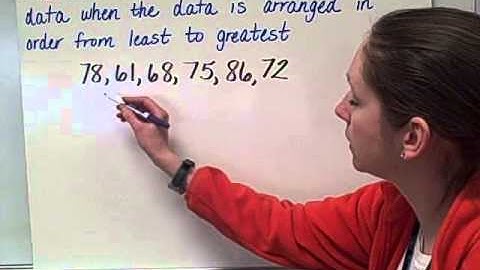 data when the data is arranged in
order from least to greatest
78, 61, 68, 75, 86, 72